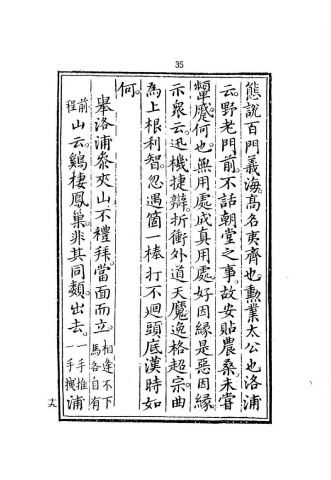 35
態說百門義海。高名夷齊也勳業太公也洛浦
云野老門前不話朝堂之事。故安貼農桑。未嘗
顰蹙何也。無用處成真用處。好因緣是惡因緣。
示衆云迅機捷辯。折衝外道天魔逸格超宗。曲
爲上根利智。忽遇箇一棒打不迴頭底漢時如
何。
舉洛浦參夾山不禮拜。當面而立。相逢不下馬各自有
前程山云雞棲鳳巢。非其同類出去。一手推一手拽浦
十九